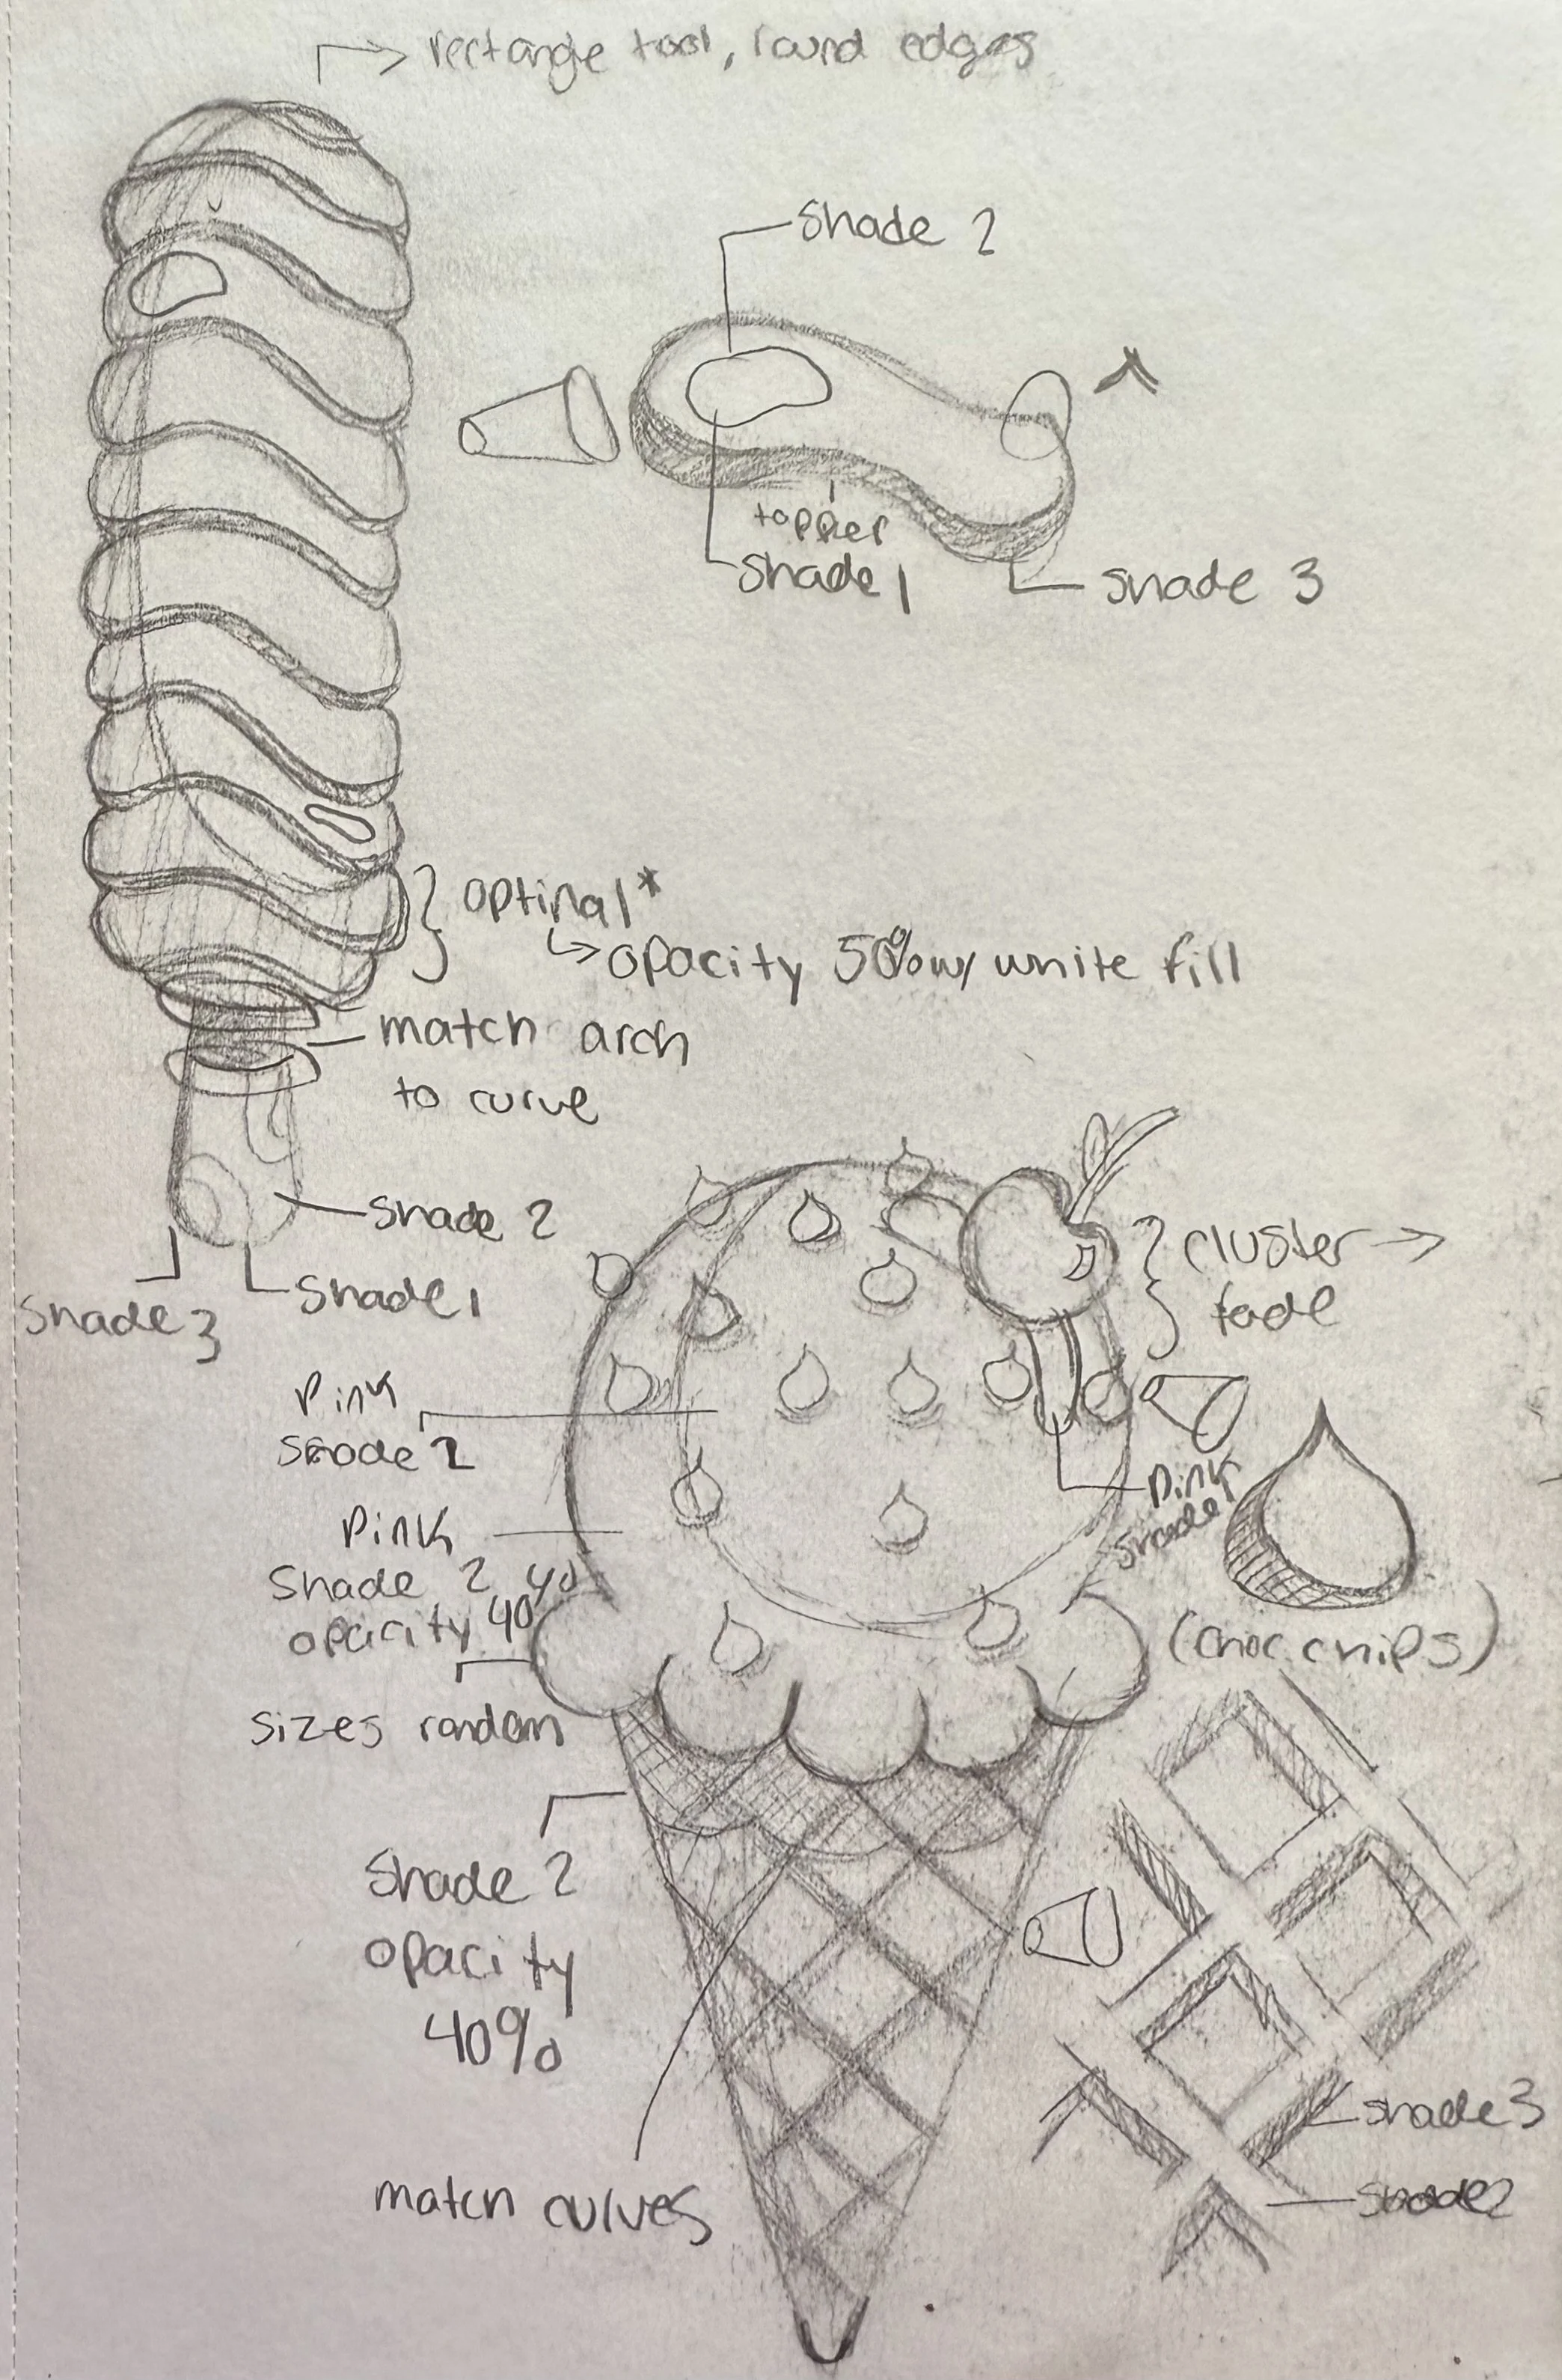 rectangle tool, round edges
shade 2
topper
shade 1
shade 3
optinal*
opacity 50% w/ white fill
match arch
to curve
shade 2
shade 1
shade 3
cluster
fade
pink
shade 2
pink
shade 2 40
opacity 40
pink
shade
(choc chips)
sizes random
shade 2
opacity
40%
match curves
shade 3
shade 2